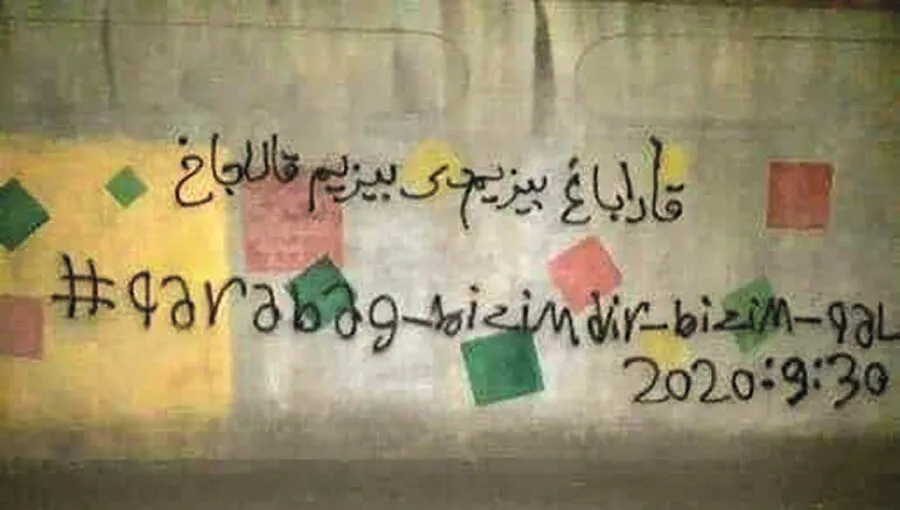 قاراباغ بیزیمدی بیزیم قالاجاخ
#qarabag-bizimdir-bizim-qal
2020:9:30